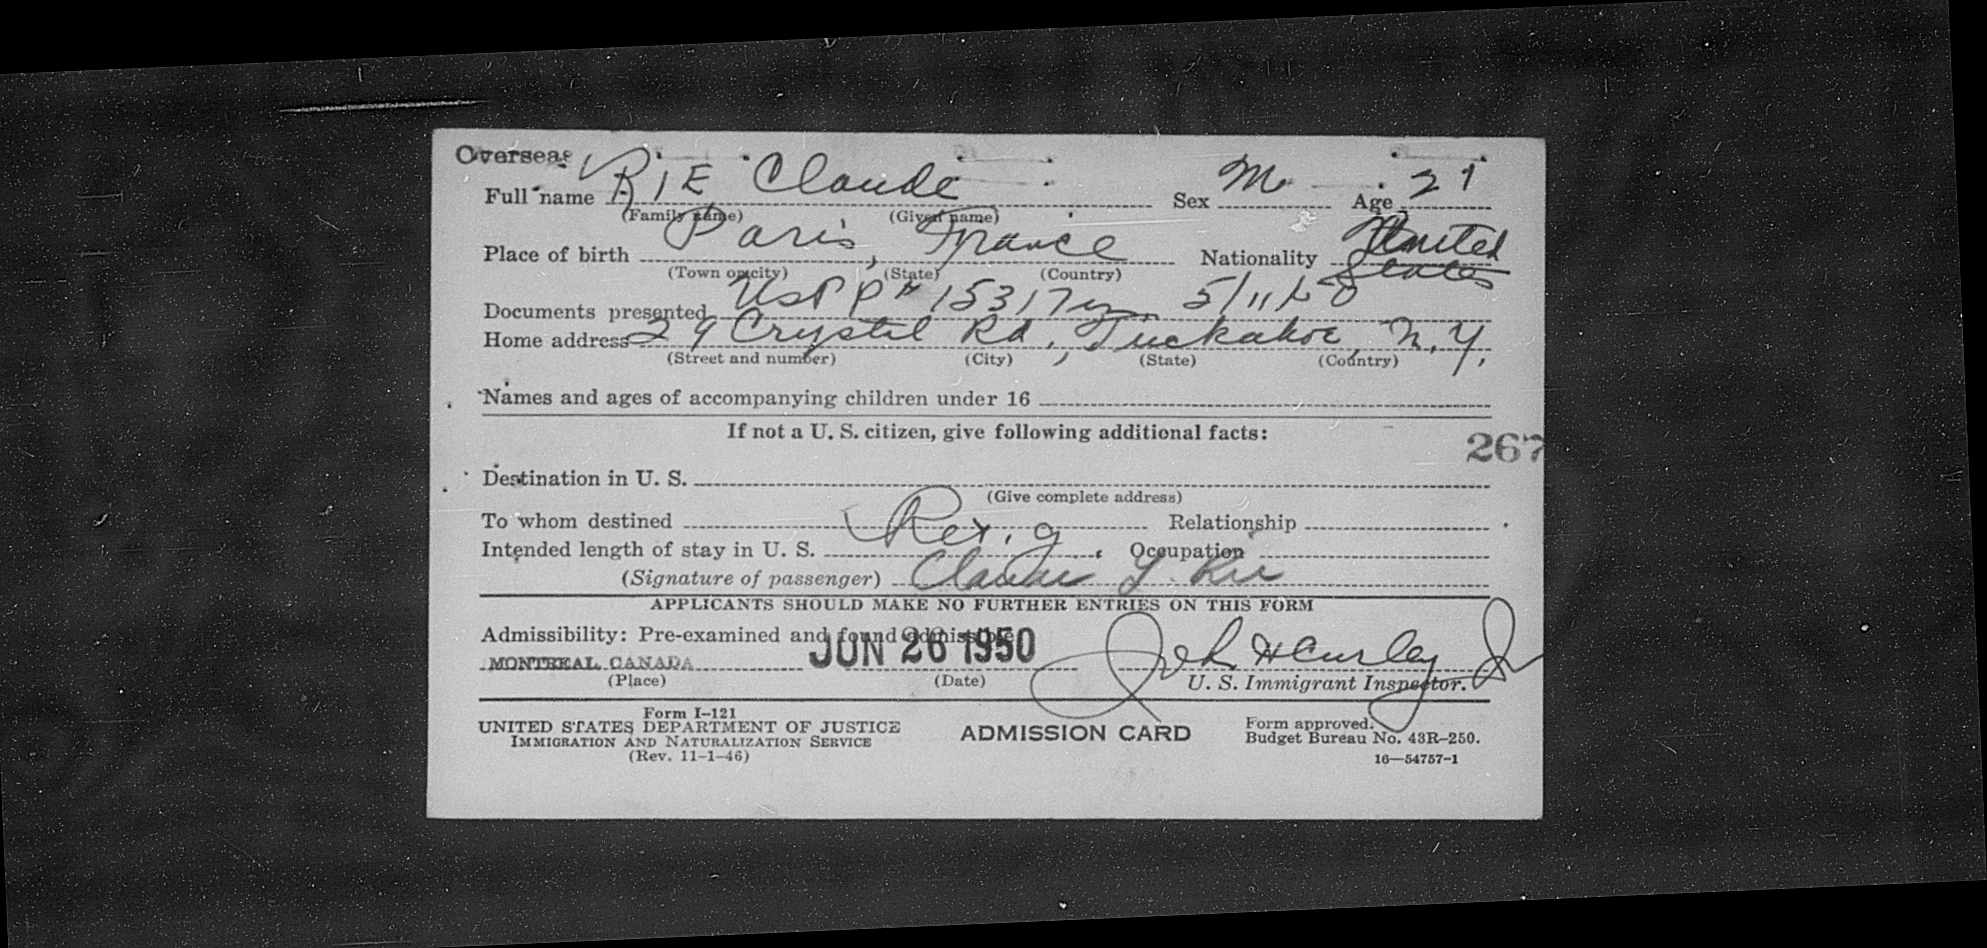 Overseas
Full name RIE Claude Sex M Age 21
(Family name) (Given name)
Place of birth Paris, France Nationality United States
(Town or city) (State) (Country)
Documents presented USPP# 15317 5/11/50
Home address 29 Crystal Rd, Tuckahoe, N.Y.
(Street and number) (City) (State) (Country)
Names and ages of accompanying children under 16
If not a U. S. citizen, give following additional facts:
267
Destination in U. S.
(Give complete address)
To whom destined Relationship
Intended length of stay in U. S. Occupation
(Signature of passenger) Claude Y. Rie
APPLICANTS SHOULD MAKE NO FURTHER ENTRIES ON THIS FORM
Admissibility: Pre-examined and found admissible
MONTREAL, CANADA JUN 26 1950 John H Curley Jr
(Place) (Date) U. S. Immigrant Inspector.
Form I-121
UNITED STATES DEPARTMENT OF JUSTICE
IMMIGRATION AND NATURALIZATION SERVICE
(Rev. 11-1-46)
ADMISSION CARD
Form approved.
Budget Bureau No. 43R-250.
16—54757-1